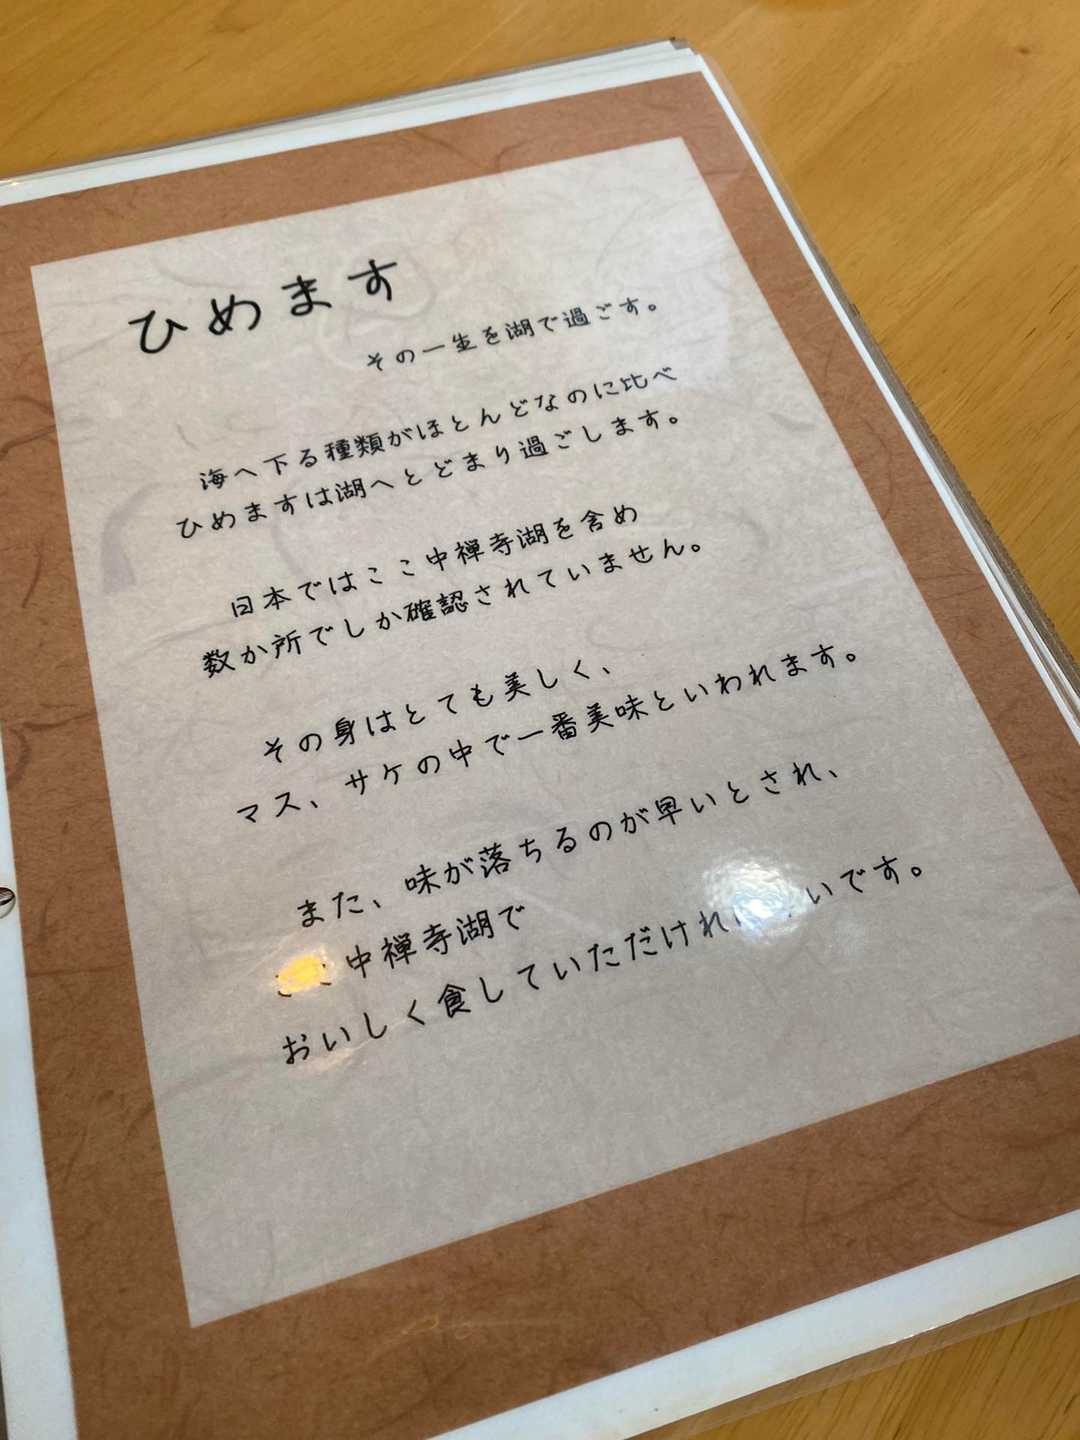 ひめます
その一生を湖で過ごす。
海へ下る種類がほとんどなのに比べ
ひめますは湖へとどまり過ごします。
日本ではここ中禅寺湖を含め
数か所でしか確認されていません。
その身はとても美しく、
マス、サケの中で一番美味といわれます。
また、味が落ちるのが早いとされ、
ここ中禅寺湖で
おいしく食していただければ いです。